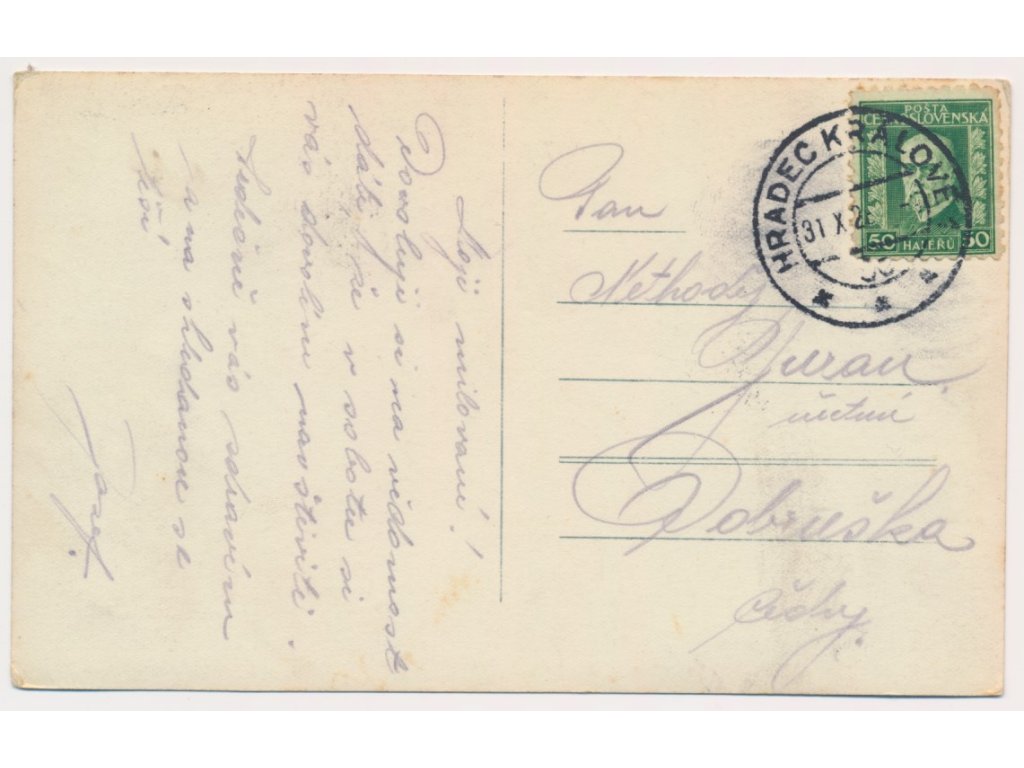 Moji milovaní!
Dovoluji si na vědomost
dáti, že v sobotu si
vás dovolím navštíviti.
Srdečně vás zdravím
a na shledanou se
těší
Josef.
POŠTA
ČESKOSLOVENSKÁ
50 HALÉŘŮ 50
HRADEC KRÁLOVÉ
31 X 2
Pan
Methoděj
Juran
účetní
Dobruška
Čechy.